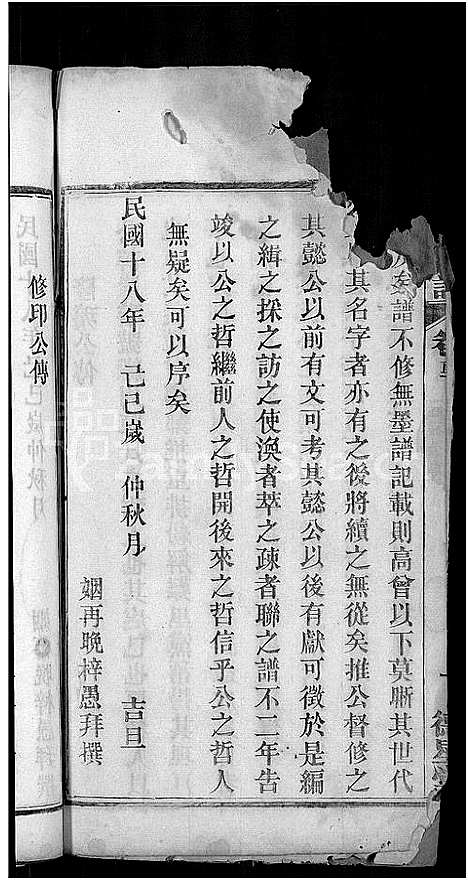 矣譜不修無墨譜記載則高曾以下莫晰其世代
其名字者亦有之後將續之無從矣推公督修之
其懿公以前有文可考其懿公以後有獻可徵於是編
之緝之採之訪之使渙者萃之疎者聯之譜不二年告
竣以公之哲繼前人之哲開後來之哲信乎公之哲人
無疑矣可以序矣
民國十八年 己巳歲 仲秋月 吉旦
姻再晚梓愚拜撰
修印公傳